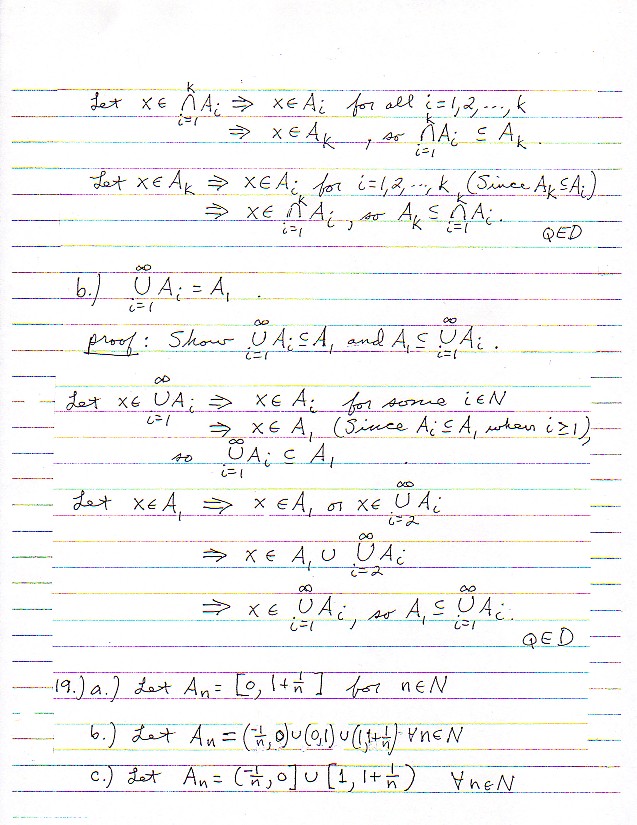 Let x ∈ ⋂_{i=1}^{k} A_i ⇒ x ∈ A_i for all i = 1, 2, ..., k
⇒ x ∈ A_k , so ⋂_{i=1}^{k} A_i ⊆ A_k .
Let x ∈ A_k ⇒ x ∈ A_i for i = 1, 2, ..., k (Since A_k ⊆ A_i)
⇒ x ∈ ⋂_{i=1}^{k} A_i , so A_k ⊆ ⋂_{i=1}^{k} A_i .
QED
b.) ⋃_{i=1}^{∞} A_i = A_1 .
proof : Show ⋃_{i=1}^{∞} A_i ⊆ A_1 and A_1 ⊆ ⋃_{i=1}^{∞} A_i .
Let x ∈ ⋃_{i=1}^{∞} A_i ⇒ x ∈ A_i for some i ∈ N
⇒ x ∈ A_1 (Since A_i ⊆ A_1 when i ≥ 1),
so ⋃_{i=1}^{∞} A_i ⊆ A_1 .
Let x ∈ A_1 ⇒ x ∈ A_1 or x ∈ ⋃_{i=2}^{∞} A_i
⇒ x ∈ A_1 ∪ ⋃_{i=2}^{∞} A_i
⇒ x ∈ ⋃_{i=1}^{∞} A_i , so A_1 ⊆ ⋃_{i=1}^{∞} A_i .
QED
19.) a.) Let A_n = [0, 1 + 1/n] for n ∈ N
b.) Let A_n = (-1/n, 0) ∪ (0,1) ∪ (1, 1 + 1/n) ∀ n ∈ N
c.) Let A_n = (-1/n, 0] ∪ [1, 1 + 1/n) ∀ n ∈ N